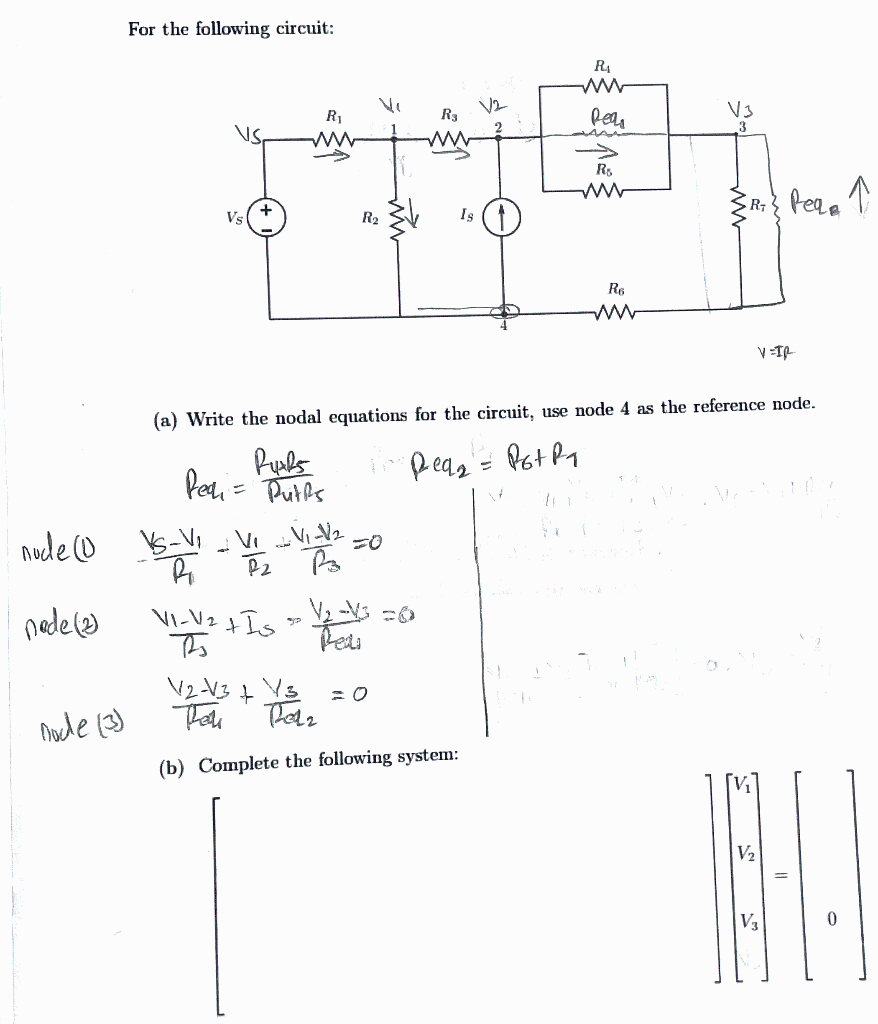 For the following circuit:
R₄
V1
V2
V3
R₁
R₃
Req₁
Vs
1
2
3
R₅
Vs
+
−
R₂
Is
R₇
Req₂
R₆
4
V=IR
(a) Write the nodal equations for the circuit, use node 4 as the reference node.
Req₁ = R4×R5 / R4+R5
Req₂ = R6+R7
node(1) Vs-V1/R1 - V1/R2 - V1-V2/R3 =0
node(2) V1-V2/R3 + Is - V2-V3/Req1 =0
node (3) V2-V3/Req1 + V3/Req2 = 0
(b) Complete the following system:
V₁
V₂
=
V₃
0